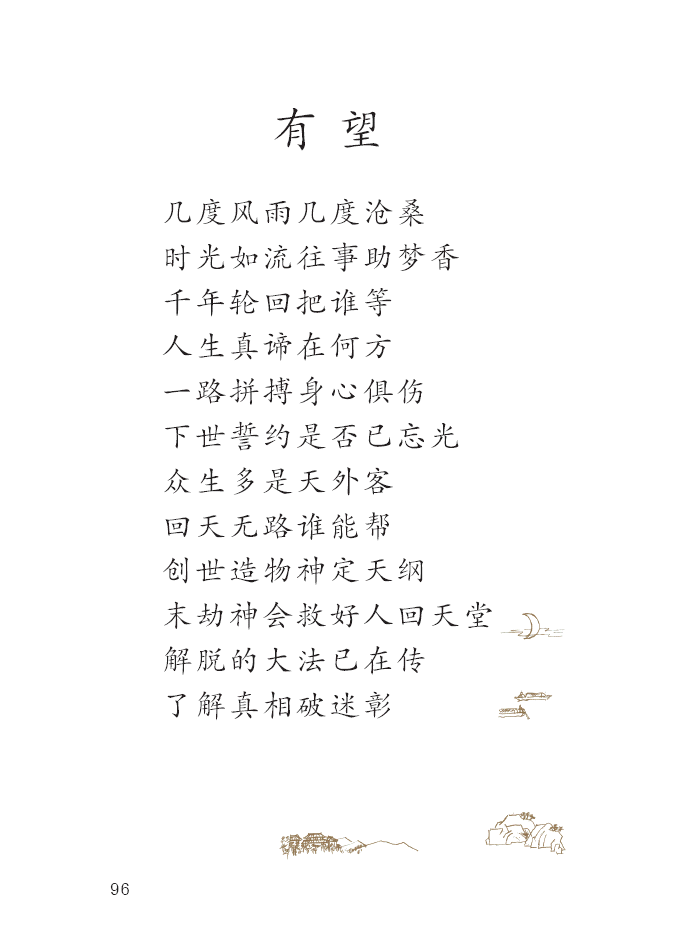 有望
几度风雨几度沧桑
时光如流往事助梦香
千年轮回把谁等
人生真谛在何方
一路拼搏身心俱伤
下世誓约是否已忘光
众生多是天外客
回天无路谁能帮
创世造物神定天纲
末劫神会救好人回天堂
解脱的大法已在传
了解真相破迷彰
96